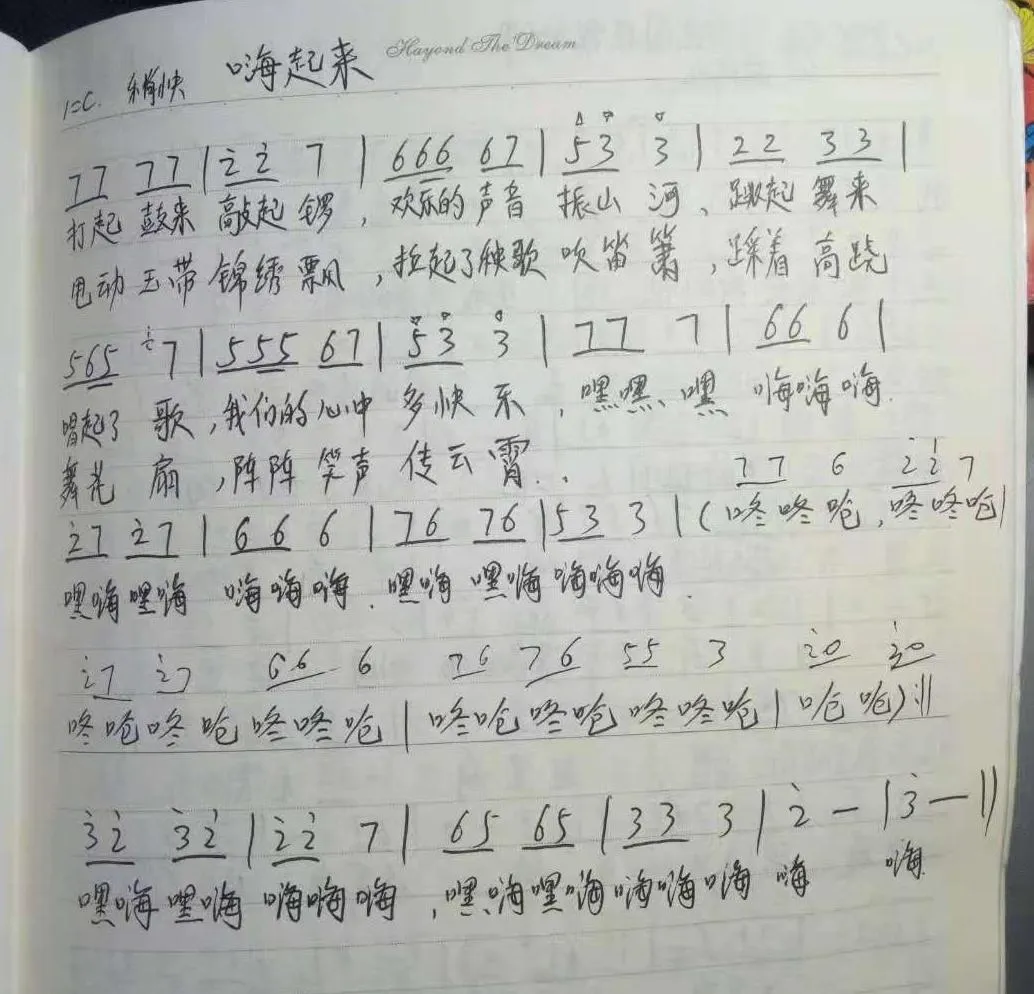 Hayond The Dream
1=C. 稍快 嗨起来
77 77 | 2̇2̇ 7 | 666 67 | 53 3 | 22 33 |
打起 鼓来 敲起 锣，欢乐的 声音 振山 河、跳起 舞来
甩动 玉带 锦绣 飘风，扭起了秧歌 吹笛 箫，踩着 高跷
565 2̇7 | 555 67 | 53 3 | 77 7 | 66 6 |
唱起了 歌，我们的 心中 多快 乐，嘿嘿、嘿 嗨嗨嗨.
舞花 扇，阵阵 笑声 传云 霄..
77 6 2̇2̇ 7
2̇7 2̇7 | 66 6 | 76 76 | 53 3 | (咚咚呛，咚咚呛|
嘿嗨嘿嗨 嗨嗨嗨. 嘿嗨 嘿嗨 嗨嗨嗨.
2̇7 2̇7 66 6 76 76 55 3 2̇0 2̇0
咚呛咚呛咚咚呛 | 咚呛咚呛咚咚呛 | 呛呛):||
3̇2̇ 3̇2̇ | 2̇2̇ 7 | 65 65 | 33 3 | 2̇ — | 3̇ — ||
嘿嗨 嘿嗨 嗨嗨嗨，嘿嗨嘿嗨嗨嗨嗨 嗨 嗨.